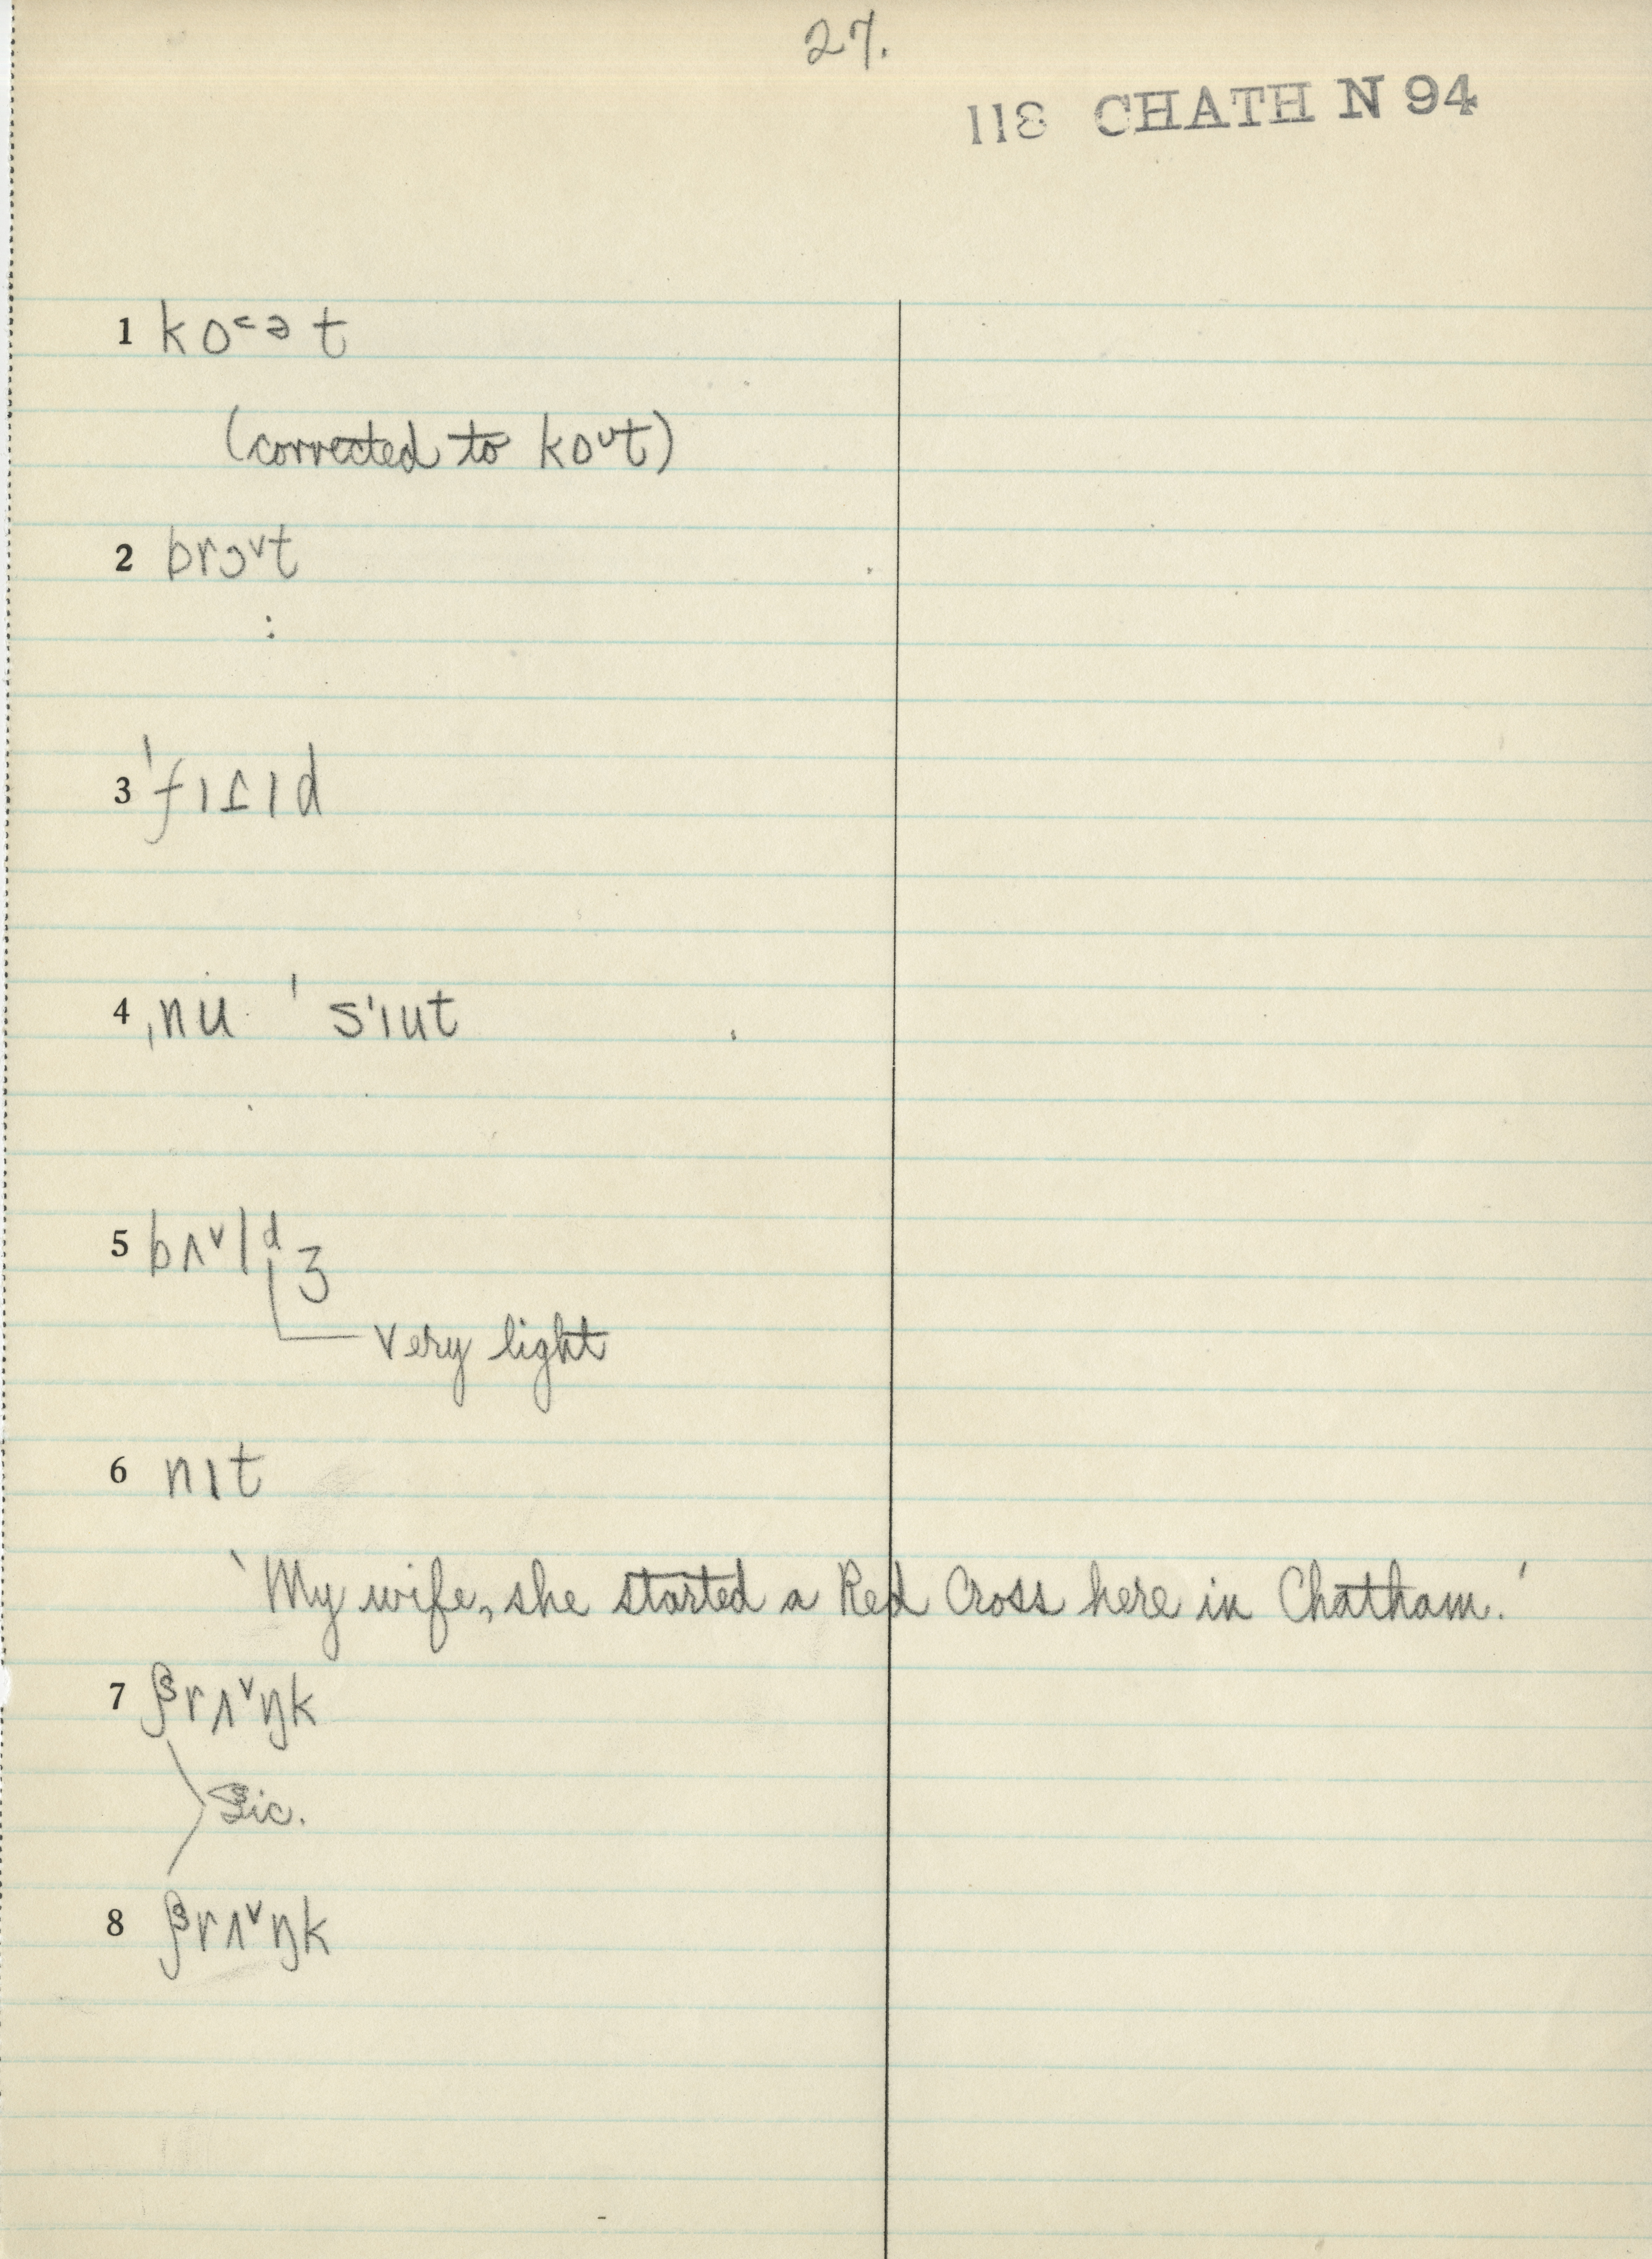 27.
118 CHATH N 94
1 ko˂ᵊt
(corrected to koᶷt)
2 brɔ˅t
:
3 ˈfɪɾɪd
4 ˌnu ˈ s'ɪut
5 bʌ˅lᵈʒ
very light
6 nɪt
‘My wife, she started a Red Cross here in Chatham.’
7 rʌ˅ŋk
Sic.
8 rʌ˅ŋk